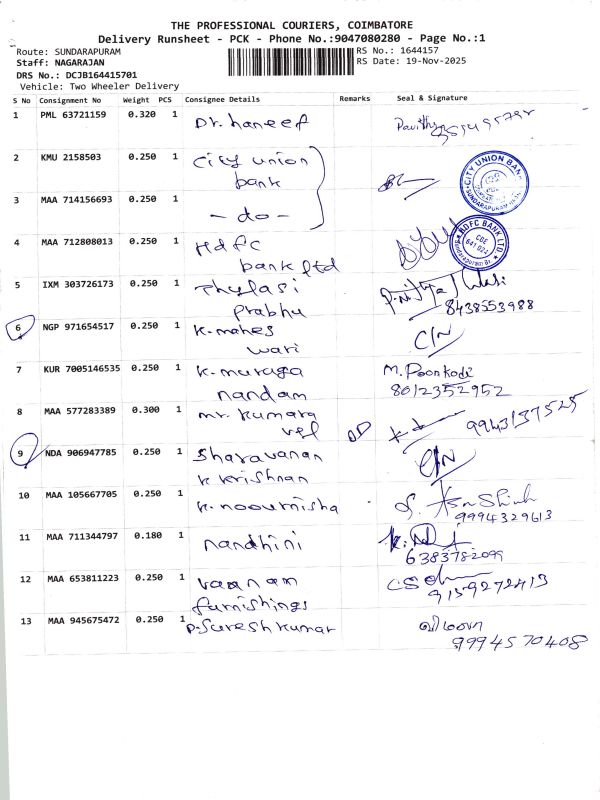 THE PROFESSIONAL COURIERS, COIMBATORE
Delivery Runsheet - PCK - Phone No.:9047080280 - Page No.:1
Route: SUNDARAPURAM RS No.: 1644157
Staff: NAGARAJAN RS Date: 19-Nov-2025
DRS No.: DCJB164415701
Vehicle: Two Wheeler Delivery
S No Consignment No Weight PCS Consignee Details Remarks Seal & Signature
1 PML 63721159 0.320 1 Dr. haneef
2 KMU 2158503 0.250 1 City union
bank
CITY UNION BANK
3 MAA 714156693 0.250 1 - do -
4 MAA 712808013 0.250 1 Hdfc
bank ltd
HDFC BANK LTD
CBE
641 024
5 IXM 303726173 0.250 1 Thulasi
Prabhu
8438553988
6 NGP 971654517 0.250 1 K. mahes
wari
C/N
7 KUR 7005146535 0.250 1 K. muruga
nandam
M. Poonkodi
8012352952
8 MAA 577283389 0.300 1 mr. kumara
vel
9943137525
9 NDA 906947785 0.250 1 Sharavanan
K Krishnan
C/N
10 MAA 105667705 0.250 1 K. noournisha
9994329613
11 MAA 711344797 0.180 1 nandhini
6383782099
12 MAA 653811223 0.250 1 vaanam
furnishings
9159272413
13 MAA 945675472 0.250 1 P. Suresh kumar
விமலா
9994570408